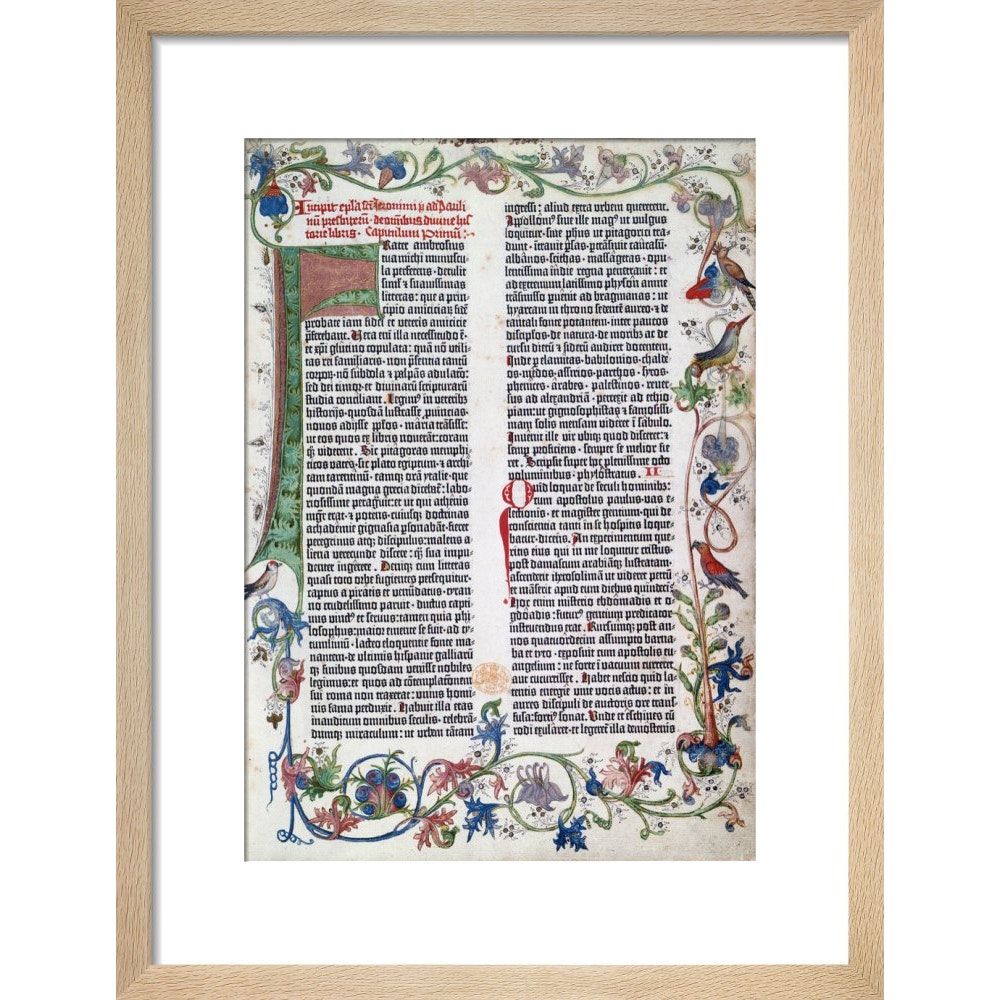 Incipit epl̃a sc̃i Jeronimi p̃ ad Pauli
nũ presbiterũ · de omĩbus diuine his
torie libris · Capitulum Primũ:·
Frater ambrosius
tua michi munuscu
la perferens · detulit
simĩ et suauissimas
litteras : que a prin-
cipio amiciciaꝝ fidẽ
probate iam fidei et veteris amicicie
p̃ferebant. Vera eni illa necessitudo ẽ·
et xpi glutino copulata : quã nõ utili-
tas rei familiaris · non p̃sentia tantũ
corpoꝝ · nõ subdola et palpãs adulatõ:
sed dei timor · et diuinaꝝ scripturarũ
studia conciliant. Legimꝰ in veteribꝫ
historijs · quosdã lustrasse p̃uincias·
nouos adijsse p̃plos · maria trãsisse:
ut eos quos ex libris nouerãt : coram
qꝫ viderent. Sic pitagoras memphi-
ticos vates · sic plato egiptum · et archi-
tam tarentinũ · eamqꝫ orã ytalie · que
quondã magna grecia dicebat̃ : labo-
riosissime peragrauit : et ut qui athenis
mg̃r erat · et potens · cuiusqꝫ doctrinas
achademie gignasia p̃sonabãt · fieret
peregrinus atqꝫ discipulus : malens a-
liena verecunde discere : qꝫ sua impu-
denter ingerere. Deniqꝫ cum litteras
quasi toto orbe fugientes persequitur·
captus a piratis et venũdatus · tyran-
no crudelissimo paruit · ductus capti-
uus vinctꝰ et seruus : tamen quia phi-
losophus : maior emente se fuit · ad ty-
tumliuiũ · lacteo eloquentie fonte ma-
nantem · de ultimis hispanie galliarũ
qꝫ finibus quosdam venisse nobiles
legimus : et quos ad cõtemplationem
sui roma non traxerat : unius homi-
nis fama perduxit. Habuit illa etas
inauditum omnibus seculis · celebrã-
dumqꝫ miraculum : ut urbem tãtam
ingressi : aliud extra urbem quererent.
Appolloniꝰ siue ille magꝰ ut vulgus
loquitur · siue phus ut pitagorici tra-
dunt · itrauit p̃sas · p̃trãsiuit caucasũ
albãnos · scithas · massagetas · opu-
lentissima ĩdie regna penetrauit : et
ad extremum latissimo physon amne
trãsmisso puẽit ad bragmanas : ut
hyarcam in throno sedentẽ aureo · et de
tantali fonte potantem · inter paucos
discipulos · de natura · de moribꝫ ac de
cursu dierũ et siderũ audiret docentem.
Inde p elamitas · babilonios · chalde-
os · medos · assirios · parthos · syros·
phenices · arabes · palestinos · reuer-
sus ad alexandriã · perrexit ad ethio-
piam : ut gignosophistas et famosissi-
mam solis mensam videret ĩ sabulo.
Inuenit ille vir ubiqꝫ quod disceret : et
semp proficiens · semper se melior fie-
ret. Scripsit super hoc plenissime octo
voluminibus · phylostratus. II
Quid loquar de seculi hominibꝫ:
cum apostolus paulus · vas e-
lectionis · et magister gentium · qui de
conscientia tanti in se hospitis loque-
batur · diceris. An experimentum que-
ritis eius qui in me loquitur cristus·
post damascum arabiãqꝫ lustratam·
ascenderit iherosolimã ut videret petrũ
et mãserit apud eum diebus quindeci.
Hoc enim misterio ebdomadis et o-
gdoadis : futurꝰ gentium predicator
instruendus erat. Rursumqꝫ post an-
nos quatuordecim assumpto barna-
ba et tyto · exposuit cum apostolis eu-
angelium : ne forte ĩ vacuum curreret
aut cucurrisset. Habet nescio quid la-
tentis energie viue vocis actus : et in
aures discipuli de auctoris ore trans-
fusa : fortiꝰ sonat. Unde et eschines cũ
rodi exularet · et legeret̃ illa demosteris